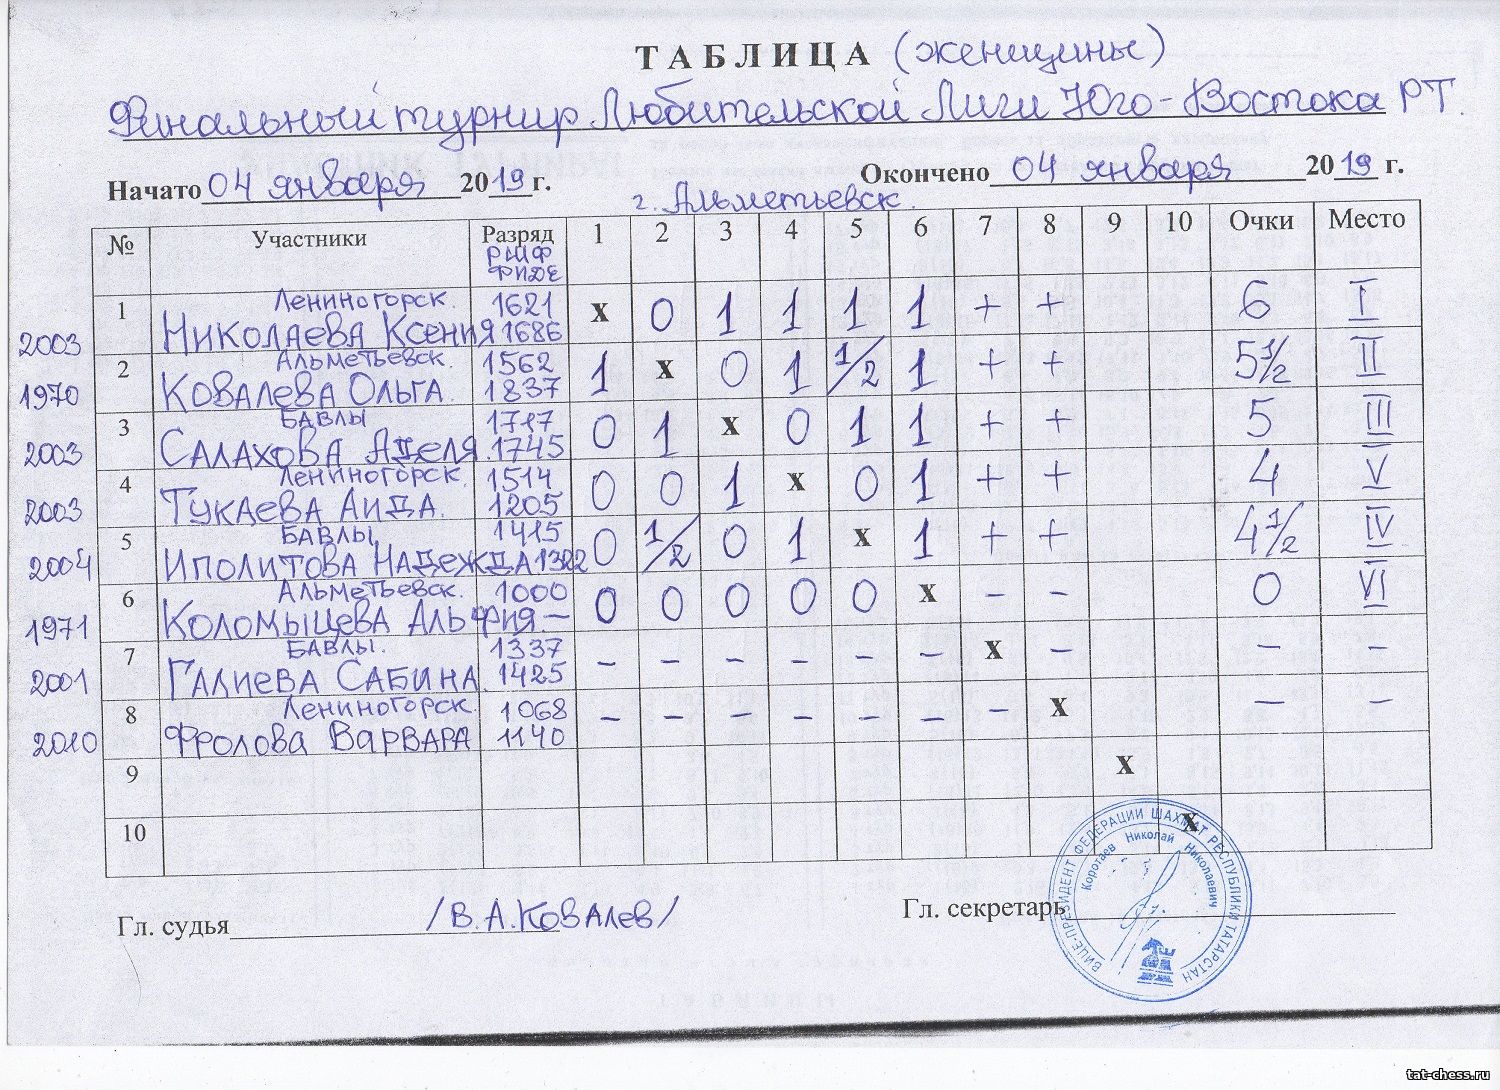 ТАБЛИЦА (женщины)
Финальный турнир Любительской Лиги Юго-Востока РТ.
Начато 04 января 2019 г. Окончено 04 января 2019 г.
г. Альметьевск.
№ Участники Разряд 1 2 3 4 5 6 7 8 9 10 Очки Место
РШФ
ФИДЕ
1 Лениногорск. 1621 x 0 1 1 1 1 + + 6 I
2003 Николаева Ксения 1686
2 Альметьевск. 1562 1 x 0 1 1/2 1 + + 5 1/2 II
1970 Ковалева Ольга. 1837
3 Бавлы 1717 0 1 x 0 1 1 + + 5 III
2003 Салахова Аделя. 1745
4 Лениногорск. 1514 0 0 1 x 0 1 + + 4 V
2003 Тукаева Аида. 1205
5 Бавлы. 1415 0 1/2 0 1 x 1 + + 4 1/2 IV
2004 Иполитова Надежда 1322
6 Альметьевск. 1000 0 0 0 0 0 x - - 0 VI
1971 Коломыцева Альфия. —
7 Бавлы. 1337 - - - - - - x - - -
2001 Галиева Сабина. 1425
8 Лениногорск 1068 - - - - - - - x - -
2010 Фролова Варвара 1140
9 x
10 x
Гл. судья /В.А.Ковалев/ Гл. секретарь
ВИЦЕ-ПРЕЗИДЕНТ ФЕДЕРАЦИИ ШАХМАТ РЕСПУБЛИКИ ТАТАРСТАН
Коротаев Николай Николаевич
tat-chess.ru